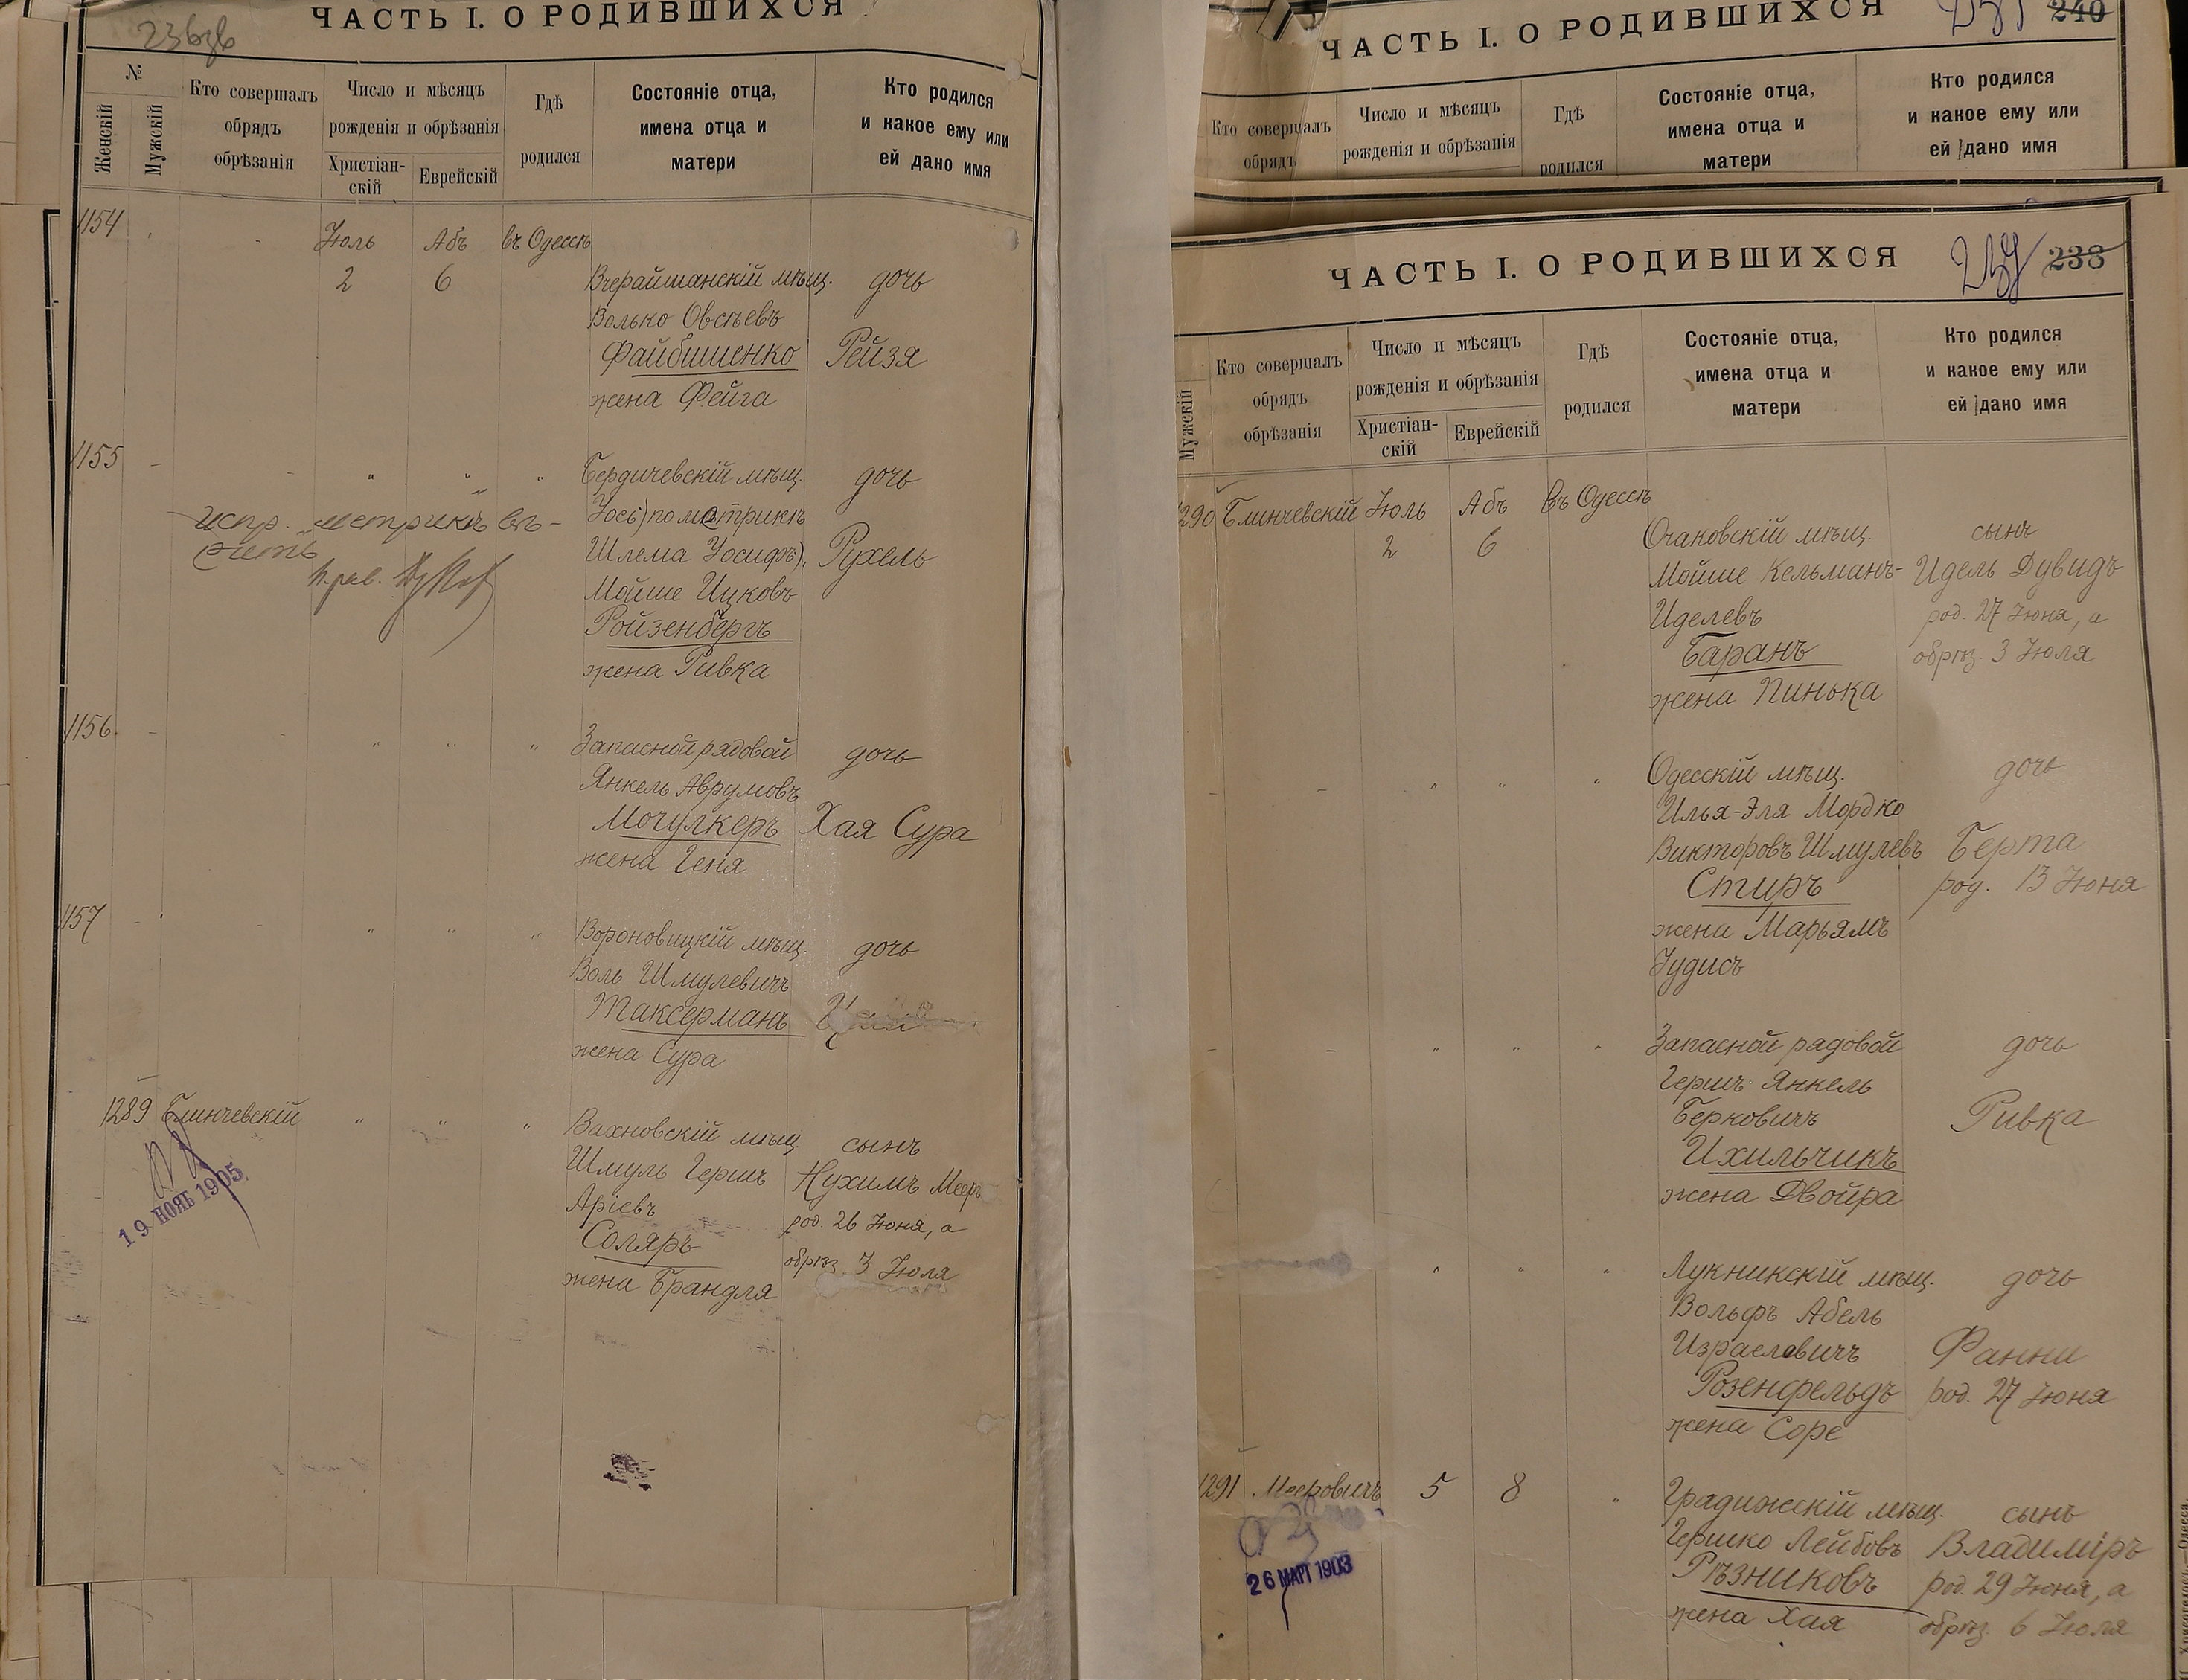 236об
ЧАСТЬ I. О РОДИВШИХСЯ
№
Женскій
Мужскій
Кто совершалъ обрядъ обрѣзанія
Число и мѣсяцъ рожденія и обрѣзанія
Христіан-скій
Еврейскій
Гдѣ родился
Состояніе отца, имена отца и матери
Кто родился и какое ему или ей дано имя
1154
Іюль Абъ въ Одессѣ
2 6 Вчерайшанскій мѣщ. дочь
Волько Овсѣевъ
Файбишенко Рейзя
жена Фейга
1155 - - " " " Бердичевскій мѣщ. дочь
Іось) по метрикѣ
Шлема Іосифъ), Рухель
Мойше Ицковъ
Ройзенбергъ
жена Ривка
испр. метрикѣ вѣ-
рить
1156. - - " " " Запасной рядовой дочь
Янкель Аврумовъ
Мочулкеръ Хая Сура
жена Геня
1157 - - " " " Вороновицкій мѣщ. дочь
Воль Шмулевичъ
Таксерманъ
жена Сура
1289 Блинчевскій " " " Вахновскій мѣщ. сынъ
Шмуль Герш Нухимъ Меер
Аріевъ род. 26 Іюня, а
Соляръ обрѣз. 3 Іюля
жена Брандля
19 НОЯБ 1905
ЧАСТЬ I. О РОДИВШИХСЯ
240
Кто совершалъ обрядъ
Число и мѣсяцъ рожденія и обрѣзанія
Гдѣ родился
Состояніе отца, имена отца и матери
Кто родился и какое ему или ей дано имя
ЧАСТЬ I. О РОДИВШИХСЯ
237 238
Мужскій
Кто совершалъ обрядъ обрѣзанія
Число и мѣсяцъ рожденія и обрѣзанія
Христіан-скій
Еврейскій
Гдѣ родился
Состояніе отца, имена отца и матери
Кто родился и какое ему или ей дано имя
1290 Блинчевскій Іюль Абъ въ Одессѣ
2 6 Очаковскій мѣщ. сынъ
Мойше Кельманъ- Идель Дувидъ
Иделевъ род. 27 Іюня, а
Баранъ обрѣз. 3 Іюля
жена Пинька
- - " " " Одесскій мѣщ. дочь
Илья-Эля Мордко
Викторовъ Шмулевъ Берта
Стиръ род. 13 Іюня
жена Марьямъ
Іудисъ
- - " " " Запасной рядовой дочь
Герш Янкель
Берковичъ Ривка
Ихильчикъ
жена Двойра
" " " Лукникскій мѣщ. дочь
Вольфъ Абель
Израелевичъ Фанни
Розенфельдъ род. 27 Іюня
жена Соре
1291 Мееровичъ 5 8 " Градижскій мѣщ. сынъ
Гершко Лейбовъ Владиміръ
Рѣзниковъ род. 29 Іюня, а
жена Хая обрѣз. 6 Іюля
26 МАРТ 1903